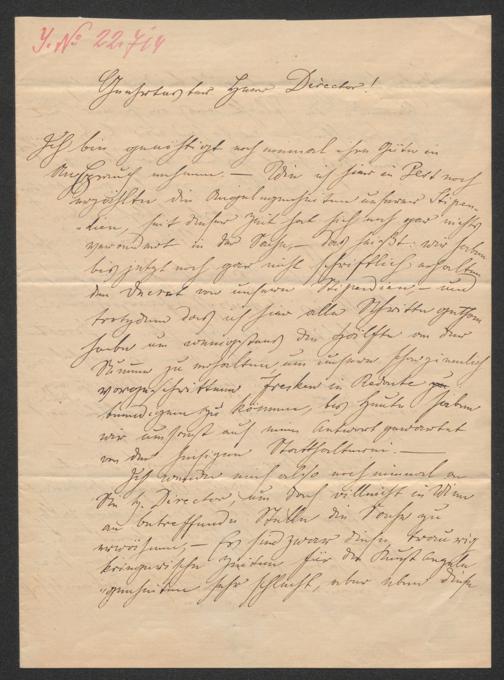 J. No 22.714
Geehrtester Herr Director!
Ich bin genöthigt noch einmal ihre Güte in
Anspruch nehmen. — Wie ich hier in Pest noch
erzählte die Angelegenheiten unserer Stipen-
-dien, seit dieser Zeit hat sich noch gar nichts
verändert in der Sache, — das heißt: wir haben
bis jetzt noch gar nicht schriftlich erhalten
den Decret von unsern Stipendien — und
trotzdem das ich hier alle Schritte gethan
habe um wenigstens die Hälfte von der
Summe zu erhalten um unsere schon ziemlich
vorgeschrittene Fresken in Redoute
beendigen zu können, bis heute haben
wir umsonst auf eine Antwort gewartet
von der hiesigen Statthalterei. —
Ich wende mich also noch einmal an
Sie H. Director, um doch villeicht in Wien
an betreffender Stelle die Sache zu
erwähnen, — Es sind zwar diese, traurig
kriegerische Zeiten für die Kunst Angele-
-genheiten sehr schlecht, aber eben diese